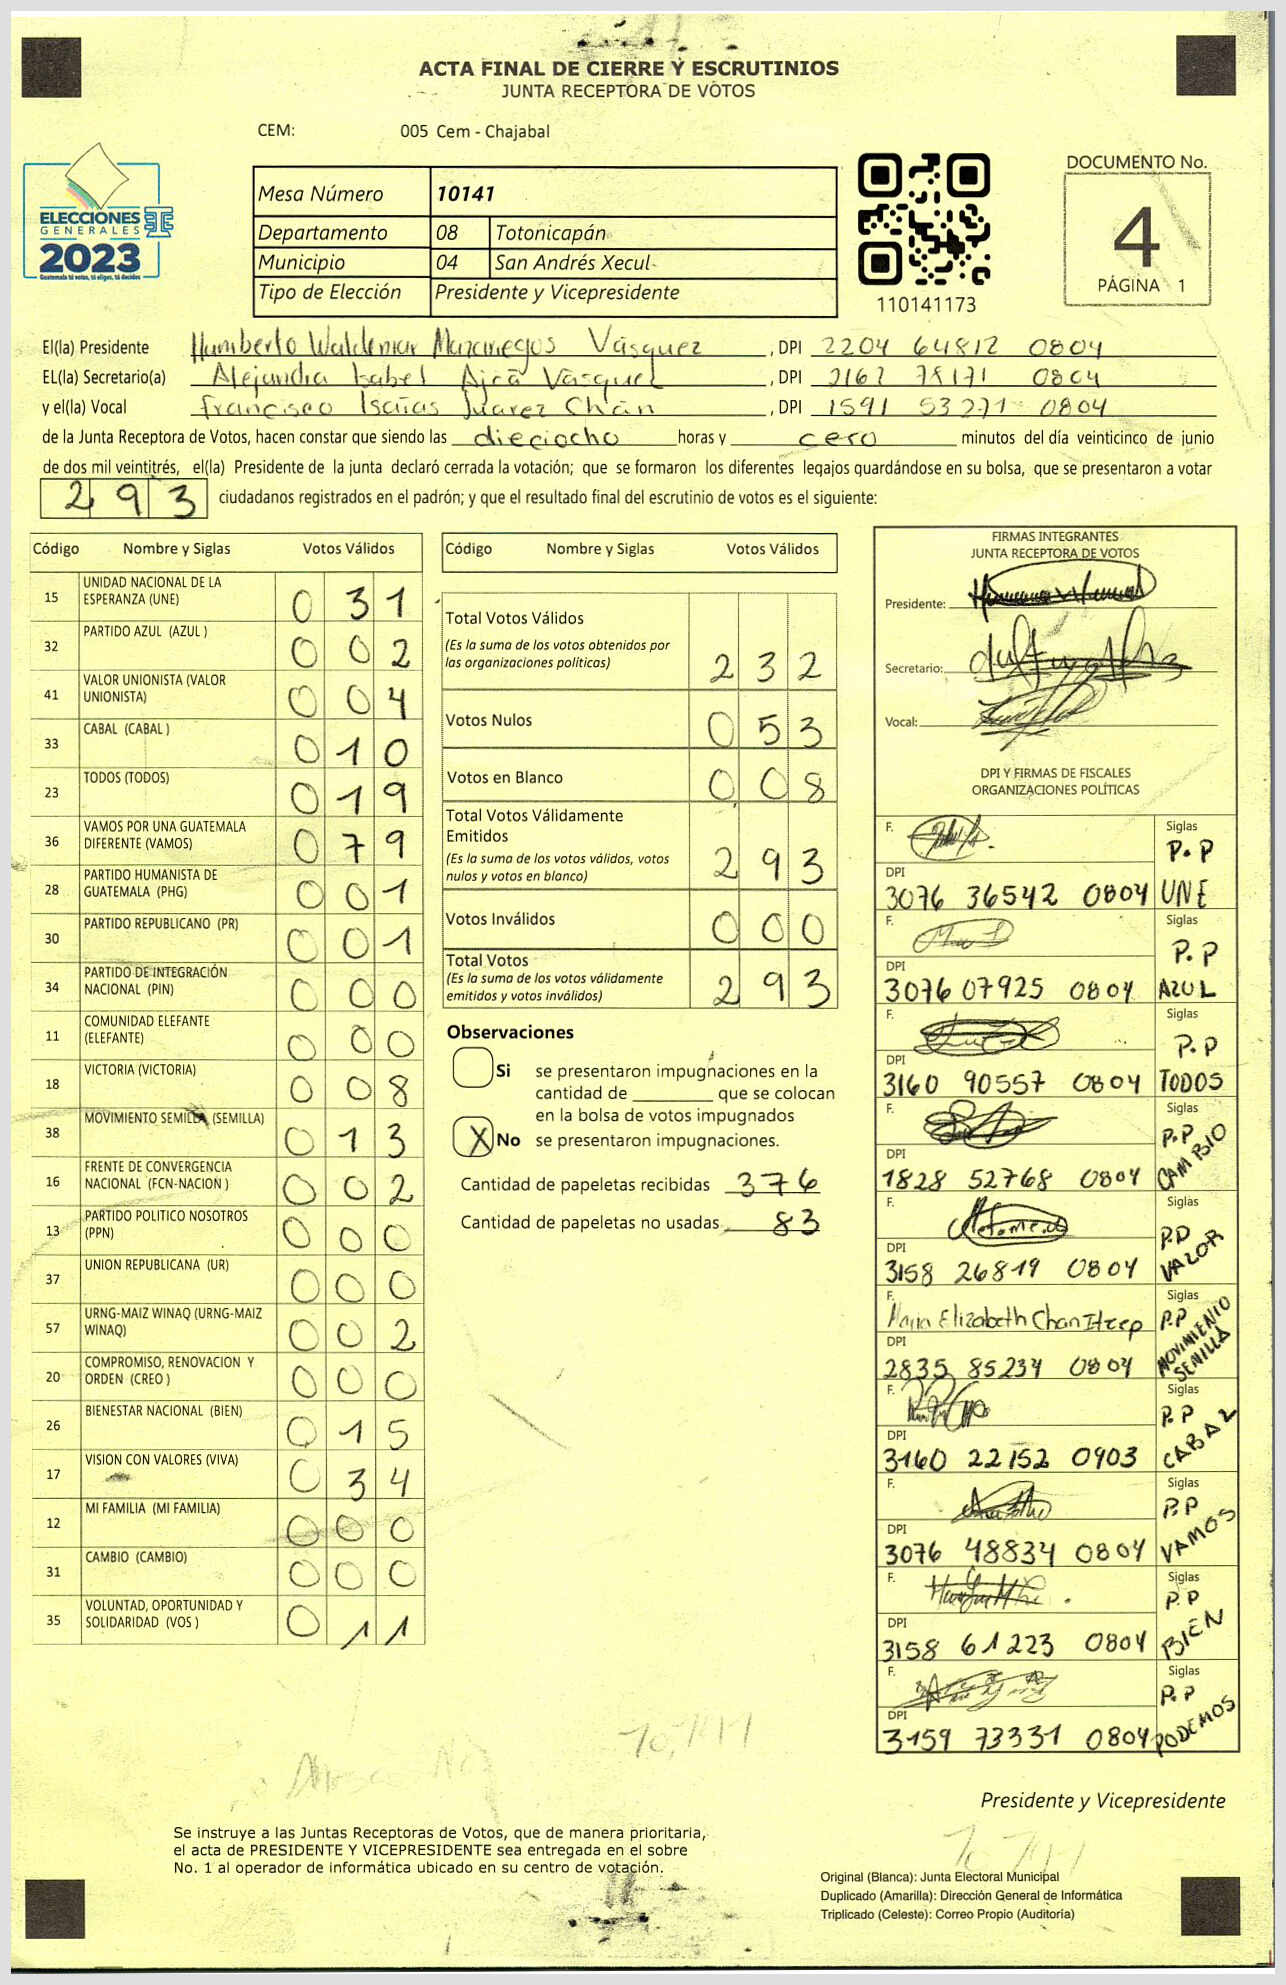 ACTA FINAL DE CIERRE Y ESCRUTINIOS
JUNTA RECEPTORA DE VOTOS
CEM: 005 Cem - Chajabal
ELECCIONES
GENERALES
2023
Guatemala tú votas, tú eliges, tú decides
Mesa Número 10141
Departamento 08 Totonicapán
Municipio 04 San Andrés Xecul
Tipo de Elección Presidente y Vicepresidente
110141173
DOCUMENTO No.
4
PÁGINA 1
El(la) Presidente Humberto Waldemar Mazariegos Vásquez, DPI 2204 64812 0804
EL(la) Secretario(a) Alejandra Isabel Ajcá Vásquez, DPI 2162 78171 0804
y el(la) Vocal Francisco Isaías Juárez Chán, DPI 1591 53271 0804
de la Junta Receptora de Votos, hacen constar que siendo las dieciocho horas y cero minutos del día veinticinco de junio
de dos mil veintitrés, el(la) Presidente de la junta declaró cerrada la votación; que se formaron los diferentes legajos guardándose en su bolsa, que se presentaron a votar
293 ciudadanos registrados en el padrón; y que el resultado final del escrutinio de votos es el siguiente:
Código Nombre y Siglas Votos Válidos
15 UNIDAD NACIONAL DE LA ESPERANZA (UNE) 0 3 1
32 PARTIDO AZUL (AZUL ) 0 0 2
41 VALOR UNIONISTA (VALOR UNIONISTA) 0 0 4
33 CABAL (CABAL ) 0 1 0
23 TODOS (TODOS) 0 1 9
36 VAMOS POR UNA GUATEMALA DIFERENTE (VAMOS) 0 7 9
28 PARTIDO HUMANISTA DE GUATEMALA (PHG) 0 0 1
30 PARTIDO REPUBLICANO (PR) 0 0 1
34 PARTIDO DE INTEGRACIÓN NACIONAL (PIN) 0 0 0
11 COMUNIDAD ELEFANTE (ELEFANTE) 0 0 0
18 VICTORIA (VICTORIA) 0 0 8
38 MOVIMIENTO SEMILLA (SEMILLA) 0 1 3
16 FRENTE DE CONVERGENCIA NACIONAL (FCN-NACION ) 0 0 2
13 PARTIDO POLITICO NOSOTROS (PPN) 0 0 0
37 UNION REPUBLICANA (UR) 0 0 0
57 URNG-MAIZ WINAQ (URNG-MAIZ WINAQ) 0 0 2
20 COMPROMISO, RENOVACION Y ORDEN (CREO ) 0 0 0
26 BIENESTAR NACIONAL (BIEN) 0 1 5
17 VISION CON VALORES (VIVA) 0 3 4
12 MI FAMILIA (MI FAMILIA) 0 0 0
31 CAMBIO (CAMBIO) 0 0 0
35 VOLUNTAD, OPORTUNIDAD Y SOLIDARIDAD (VOS ) 0 1 1
Código Nombre y Siglas Votos Válidos
Total Votos Válidos
(Es la suma de los votos obtenidos por las organizaciones políticas) 2 3 2
Votos Nulos 0 5 3
Votos en Blanco 0 0 8
Total Votos Válidamente Emitidos
(Es la suma de los votos válidos, votos nulos y votos en blanco) 2 9 3
Votos Inválidos 0 0 0
Total Votos
(Es la suma de los votos válidamente emitidos y votos inválidos) 2 9 3
Observaciones
Si se presentaron impugnaciones en la
cantidad de ________ que se colocan
en la bolsa de votos impugnados
X No se presentaron impugnaciones.
Cantidad de papeletas recibidas 376
Cantidad de papeletas no usadas 83
FIRMAS INTEGRANTES
JUNTA RECEPTORA DE VOTOS
Presidente:
Secretario:
Vocal:
DPI Y FIRMAS DE FISCALES
ORGANIZACIONES POLÍTICAS
F. Siglas P.P
DPI 3076 36542 0804 UNE
F. Siglas P.P
DPI 3076 07925 0804 AZUL
F. Siglas P.P
DPI 3160 90557 0804 TODOS
F. Siglas P.P
DPI 1828 52768 0804 CAMBIO
F. Siglas P.P
DPI 3158 26819 0804 VALOR
F. Maria Elizabeth Chan Itzep Siglas P.P
DPI 2835 85234 0804 MOVIMIENTO SEMILLA
F. Siglas P.P
DPI 3160 22152 0903 CABAL
F. Siglas P.P
DPI 3076 48834 0804 VAMOS
F. Siglas P.P
DPI 3158 61223 0804 BIEN
F. Siglas P.P
DPI 3159 73331 0804 PODEMOS
Presidente y Vicepresidente
Se instruye a las Juntas Receptoras de Votos, que de manera prioritaria,
el acta de PRESIDENTE Y VICEPRESIDENTE sea entregada en el sobre
No. 1 al operador de informática ubicado en su centro de votación.
Original (Blanca): Junta Electoral Municipal
Duplicado (Amarilla): Dirección General de Informática
Triplicado (Celeste): Correo Propio (Auditoría)